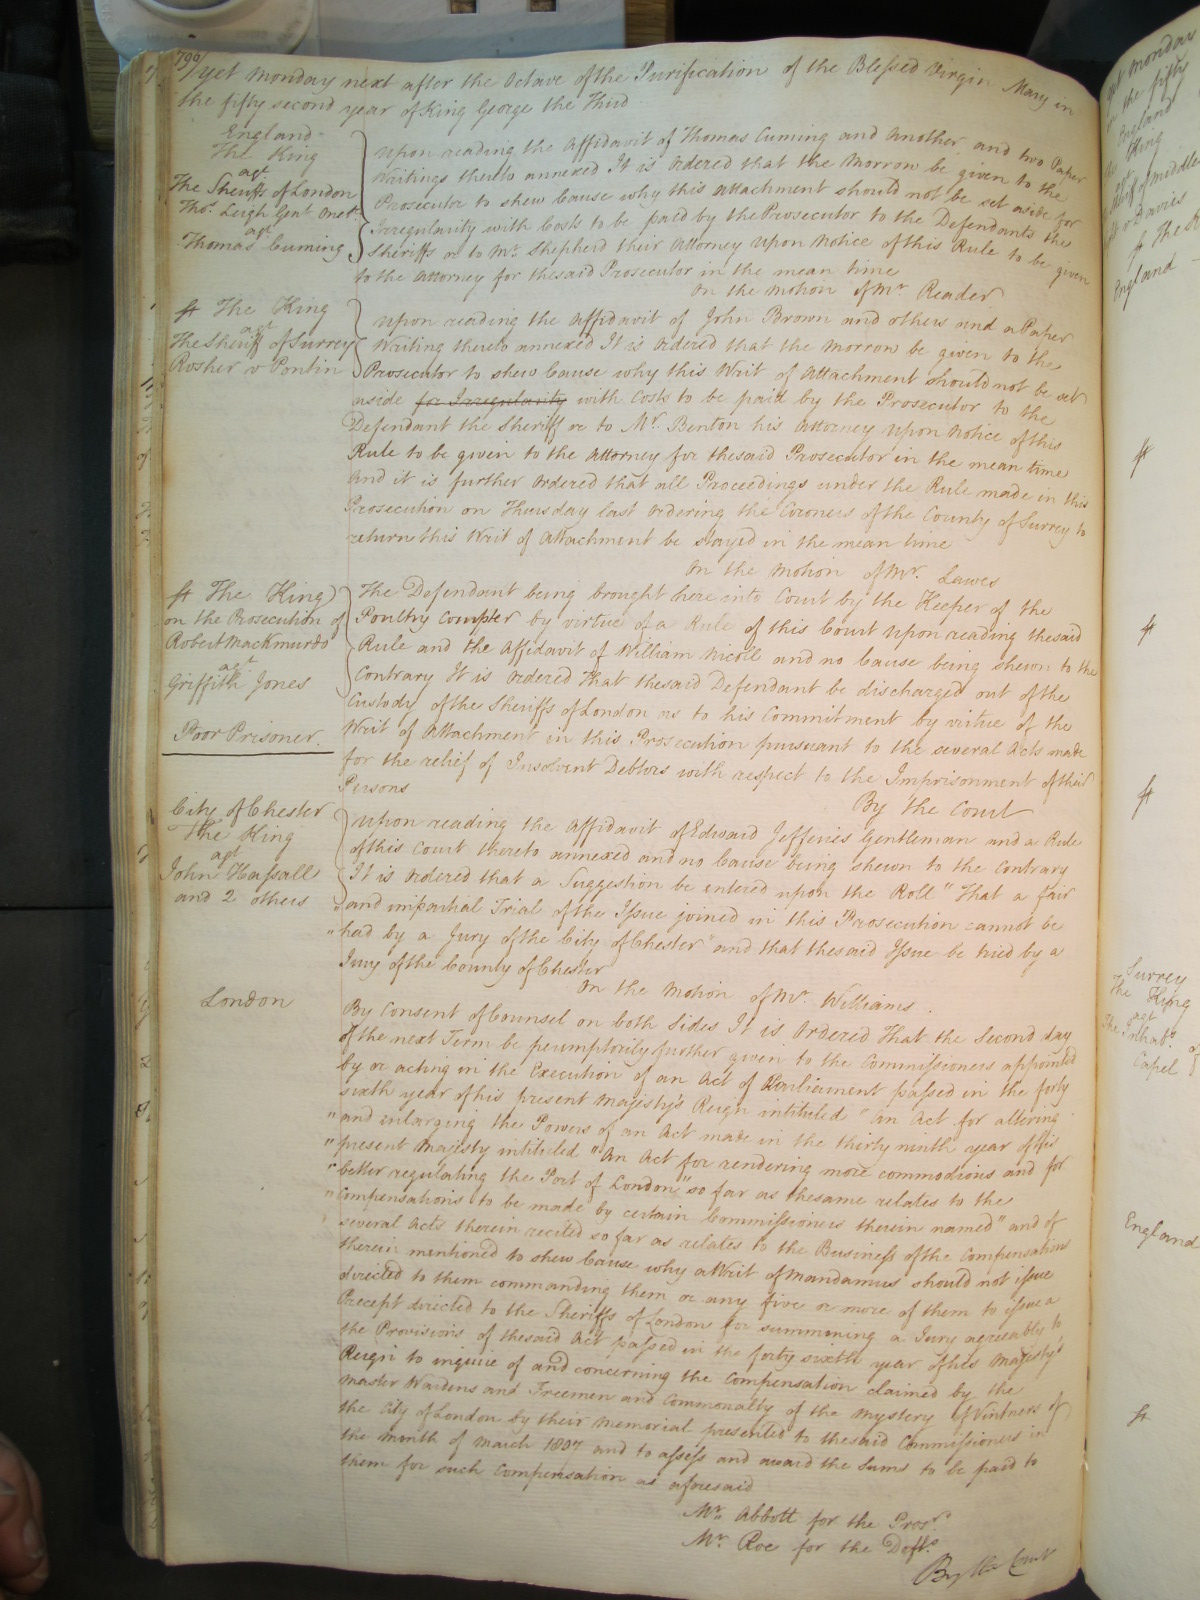 790
Yet Monday next after the Octave of the Purification of the Blessed Virgin Mary in
the fifty second year of King George the Third
England
The King
agt
The Sheriffs of London
Thos. Leigh Gent One &c
agt
Thomas Cuming
Upon reading the Affidavit of Thomas Cuming and Another and two Paper
Writings thereto annexed It is Ordered that the Morrow be given to the
Prosecutor to shew Cause why this Attachment should not be set aside for
Irregularity with Costs to be paid by the Prosecutor to the Defendants the
Sheriffs or to Mr. Shepherd their Attorney upon Notice of this Rule to be given
to the Attorney for the said Prosecutor in the mean time
On the Motion of Mr Reader
The King
agt
The Sheriff of Surrey
Rosher v Pontin
Upon reading the Affidavit of John Brown and others and a Paper
Writing thereto annexed It is Ordered that the Morrow be given to the
Prosecutor to shew Cause why this Writ of Attachment should not be set
aside for Irregularity with Costs to be paid by the Prosecutor to the
Defendant the Sheriff or to Mr. Benton his Attorney upon Notice of this
Rule to be given to the Attorney for the said Prosecutor in the mean time
And it is further Ordered that all Proceedings under the Rule made in this
Prosecution on Thursday last ordering the Coroners of the County of Surrey to
return this Writ of Attachment be stayed in the mean time
On the Motion of Mr. Lawes
The King
on the Prosecution of
Robert Mackmurdo
agt
Griffith Jones
Poor Prisoner
The Defendant being brought here into Court by the Keeper of the
Poultry Compter by virtue of a Rule of this Court upon reading the said
Rule and the Affidavit of William Nicoll and no Cause being shewn to the
Contrary It is Ordered That the said Defendant be discharged out of the
Custody of the Sheriffs of London as to his Commitment by virtue of the
Writ of Attachment in this Prosecution pursuant to the several Acts made
for the relief of Insolvent Debtors with respect to the Imprisonment of their
Persons
By the Court
City of Chester
The King
agt
John Hassall
and 2 others
Upon reading the Affidavit of Edward Jefferies Gentleman and a Rule
of this Court thereto annexed and no Cause being shewn to the Contrary
It is Ordered that a Suggestion be entered upon the Roll "That a fair
"and impartial Trial of the Issue joined in this Prosecution cannot be
"had by a Jury of the City of Chester" and that the said Issue be tried by a
Jury of the County of Chester
On the Motion of Mr. Williams
London
By Consent of Counsel on both sides It is Ordered That the Second day
of the next Term be peremptorily further given to the Commissioners appointed
by or acting in the Execution of an Act of Parliament passed in the forty
sixth year of his present Majesty's Reign intituled "An Act for altering
"and enlarging the Powers of an Act made in the thirty ninth year of his
"present Majesty intituled "An Act for rendering more commodious and for
"better regulating the Port of London" so far as the same relates to the
"Compensations to be made by certain Commissioners therein named" and of
several Acts therein recited so far as relates to the Business of the Compensations
therein mentioned to shew Cause why a Writ of Mandamus should not issue
directed to them commanding them or any five or more of them to issue a
Precept directed to the Sheriffs of London for summoning a Jury agreeably to
the Provisions of the said Act passed in the forty sixth year of his Majesty's
Reign to inquire of and concerning the Compensation claimed by the
Master Wardens and Freemen and Commonalty of the Mystery of Vintners of
the City of London by their Memorial presented to the said Commissioners in
the Month of March 1807 and to assess and award the Sums to be paid to
them for such Compensation as aforesaid
Mr. Abbott for the Prosr.
Mr. Roe for the Defts.
By the Court
Yet Monday
the fifty
England
King
agt
of Middle
v Davies
The
England
Surrey
The King
agt
The Inhabts. of
Capel
England